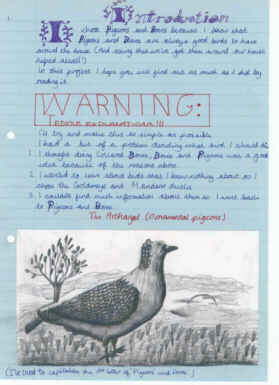 Introduction
I chose Pigeons and Doves because I know that
Pigeons and Doves are always good birds to have
around the house. (And seeing that we've got them around our house
helped as well!)
In this project I hope you will find out as much as I did by
reading it.
WARNING:
I'll try and make this as simple as possible.
I had a bit of a problem deciding what bird I should do.
1. I thought doing Collared Doves, Doves and Pigeons was a good
idea because of the reasons above.
2. I wanted to learn some birds that I knew nothing about so I
chose the Goldeneye and Mandarin ducks.
3. I couldn't find much information about them so I went back
to Pigeons and Doves.
The Archangel (Ornamental pigeons)
(I've tried to capitalise the 1st letter of Pigeons and Doves.)